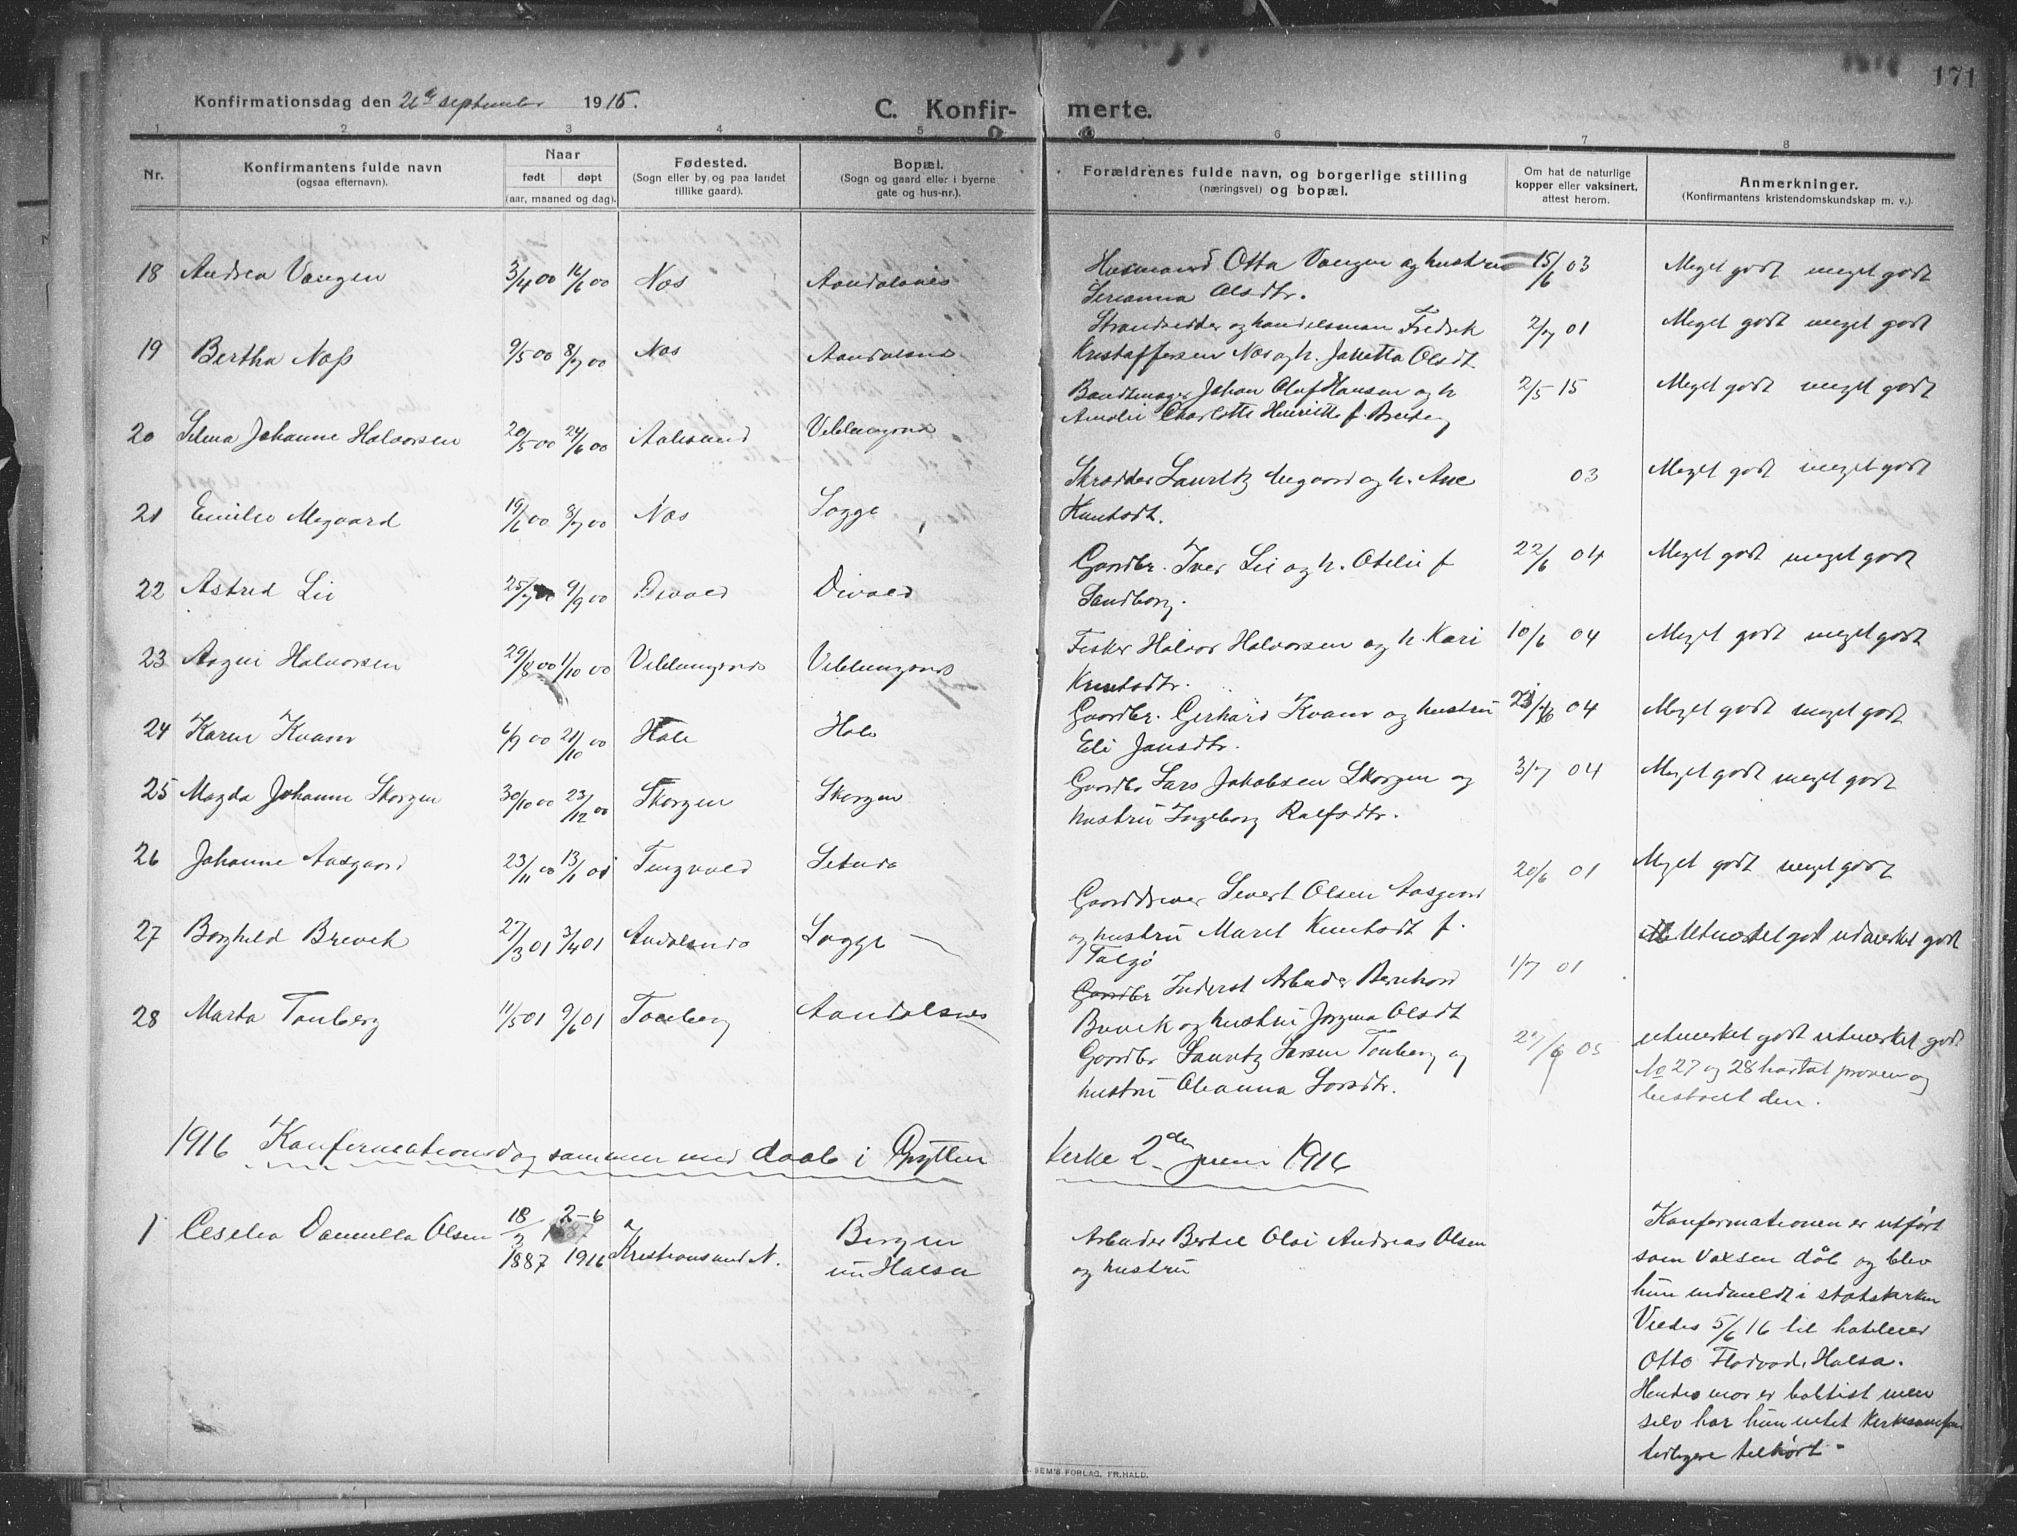 171
Konfirmationsdag den 26de september 1915.
C. Konfirmerte.
1 2 3 4 5 6 7 8
Nr.
Konfirmantens fulde navn
(ogsaa efternavn).
Naar
født døpt
(aar, maaned og dag).
Fødested.
(Sogn eller by, og paa landet
tillike gaard).
Bopæl.
(Sogn og gaard eller i byerne
gate og hus-nr.).
Forældrenes fulde navn, og borgerlige stilling
(næringsvei) og bopæl.
Om hat de naturlige
kopper eller vaksinert,
attest herom.
Anmerkninger.
(Konfirmantens kristendomskundskap m. v.).
18 Andrea Vangen 3/4 00 16/6 00 Nos Aandalsnes
Husmand Otto Vangen og hustru 15/6 03 Meget godt meget godt
Serianna Olsdtr.
19 Bertha Nass 9/5 00 8/7 00 Nos Aandalsnes
Strandsidder og handelsman Fredrik 2/7 01 Meget godt meget godt
Kristoffersen Nos og h. Jaketta Olsdt
20 Selma Johanne Halvorsen 20/5 00 24/6 00 Aalesund Veblungsnes
Bundtmager Johan Oluf Hansen og h 2/5 15 Meget godt meget godt
Amalie Charlotte Henriette f.
21 Emilie Megaard 19/6 00 8/7 00 Nos Sogge
Skrædder Lauritz Megaard og h. Ane 03 Meget godt meget godt
Knutsdt.
22 Astrid Lii 25/7 00 9/9 00 Devold Devold
Gaardbr. Iver Lii og h. Otelie f 22/6 04 Meget godt meget godt
Sandborg.
23 Aagni Halvorsen 29/8 00 1/10 00 Veblungsnes Veblungsnes
Fisker Halvor Halvorsen og h. Kari 10/6 04 Meget godt meget godt
Knutsdtr.
24 Karen Kvam 6/9 00 21/10 00 Hole Hole
Gaardbr. Gerhard Kvam og hustru 04 Meget godt meget godt
Eli Jansdtr.
25 Magda Johanne Skorgen 30/10 00 23/12 00 Skorgen Skorgen
Gaardbr Lars Jakobsen Skorgen og 3/7 04 Meget godt meget godt
hustru Ingeborg Ralfsdtr.
26 Johanne Aasgaard 23/11 00 13/1 01 Tingvold Setnes
Gaarddriver Sivert Olsen Aasgaard 20/6 01 Meget godt meget godt
og hustru Maret Knutsdt f.
Talgø
27 Borghild Brevik 27/3 01 3/4 01 Andalsnes Sogge
Gaardbr Inderst Arbeider Bernhard 1/7 01 Utmerket godt udmerket godt
Brevik og hustru Jorgina Olsdt
28 Marta Tonberg 11/5 01 9/6 01 Tonberg Aandalsnes
Gaardbr Lauritz Larsen Tonberg og 27/6 05 utmerket godt utmerket godt
hustru Oleanna Larsdtr.
No 27 og 28 har tat prøven og
bestaaet den.
1916 Konfirmationsdag sammen med daab i Grytten kirke 2den juni 1916
1 Ceselia Danielle Olsen 18/2 1887 2-6 1916 Kristiansund N. Bergen
nu Halsa
Arbeider Bertel Olai Andreas Olsen
og hustru
Konfirmationen er utført
som voxsen dåb og blev
hun indmeldt i statskirken
Viedes 5/6 16 til hoteleier
Otto Flodvad, Halsa.
Hendes mor er baptist men
selv har hun intet kirkesamfun
tidligere tilhørt.
SEM'S FORLAG, FR.HALD.